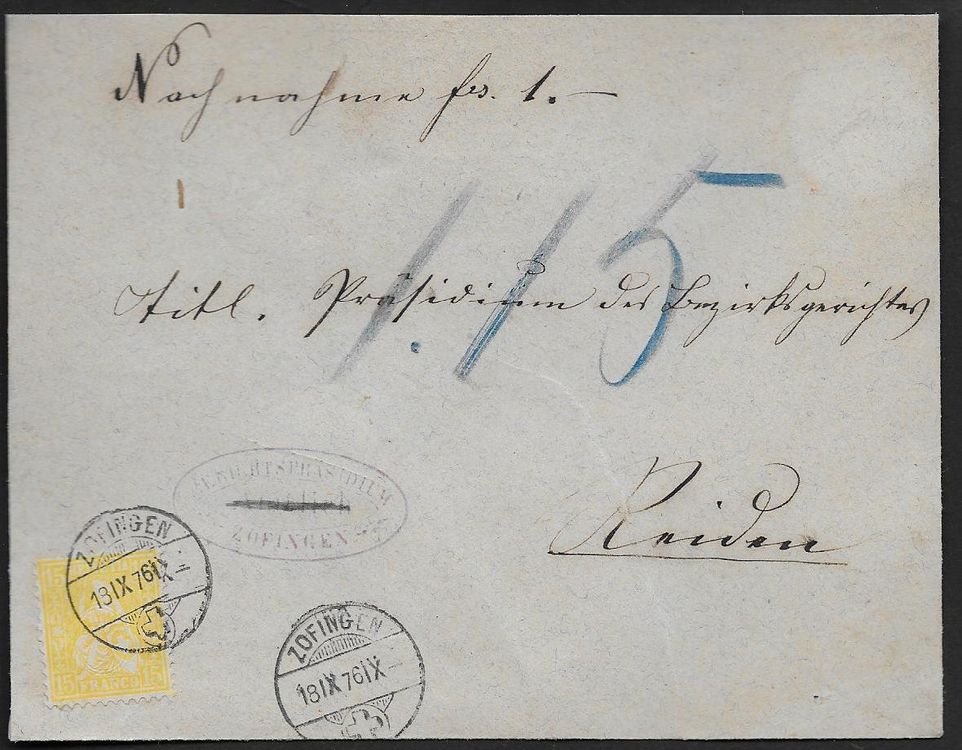 Nachnahme frs. 1. —
1.15
Titl. Präsidium des Bezirksgerichtes
Reiden
GERICHTSPRÄSIDIUM
ZOFINGEN
ZOFINGEN
18 IX 76 IX –
15 15
15 FRANCO 15
ZOFINGEN
18 IX 76 IX –